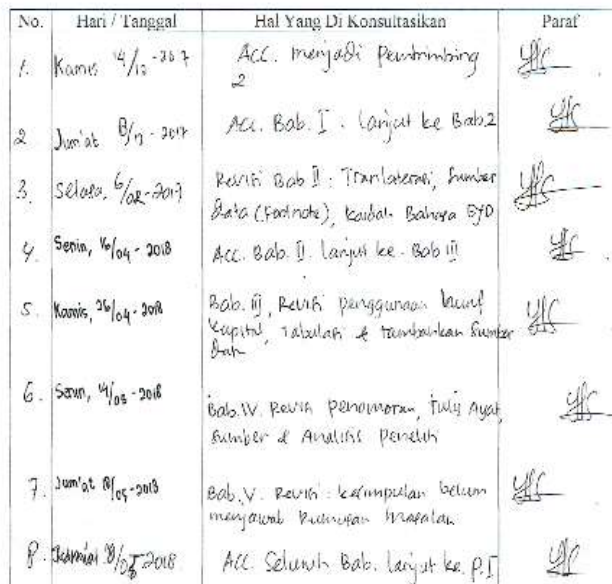 No. Hari / Tanggal Hal Yang Di Konsultasikan Paraf
1. Kamis 14/12 - 2017 Acc. menjadi pembimbing
2
2 Jum'at - 2017 Acc. Bab. I . lanjut ke Bab.2
3. Selasa, 6/02 - 2017 Revisi Bab II : Tranlaterasi, Sumber
Data (Footnote), Kaidah Bahasa EYD
4. Senin, 16/04 - 2018 Acc. Bab. II. lanjut ke. Bab III
5. Kamis, 26/04 - 2018 Bab. III, Revisi penggunaan huruf
Kapital, Tabulasi & tambahkan Sumber
Data
6. Senin, 14/05 - 2018 Bab. IV. Revisi penomoran, tulis Ayat,
Sumber & Analisis Peneliti
7. Jum'at 18/05 - 2018 Bab. V. Revisi : kesimpulan belum
menjawab Rumusan masalah
8. 2018 Acc. Seluruh Bab. lanjut ke. P.I